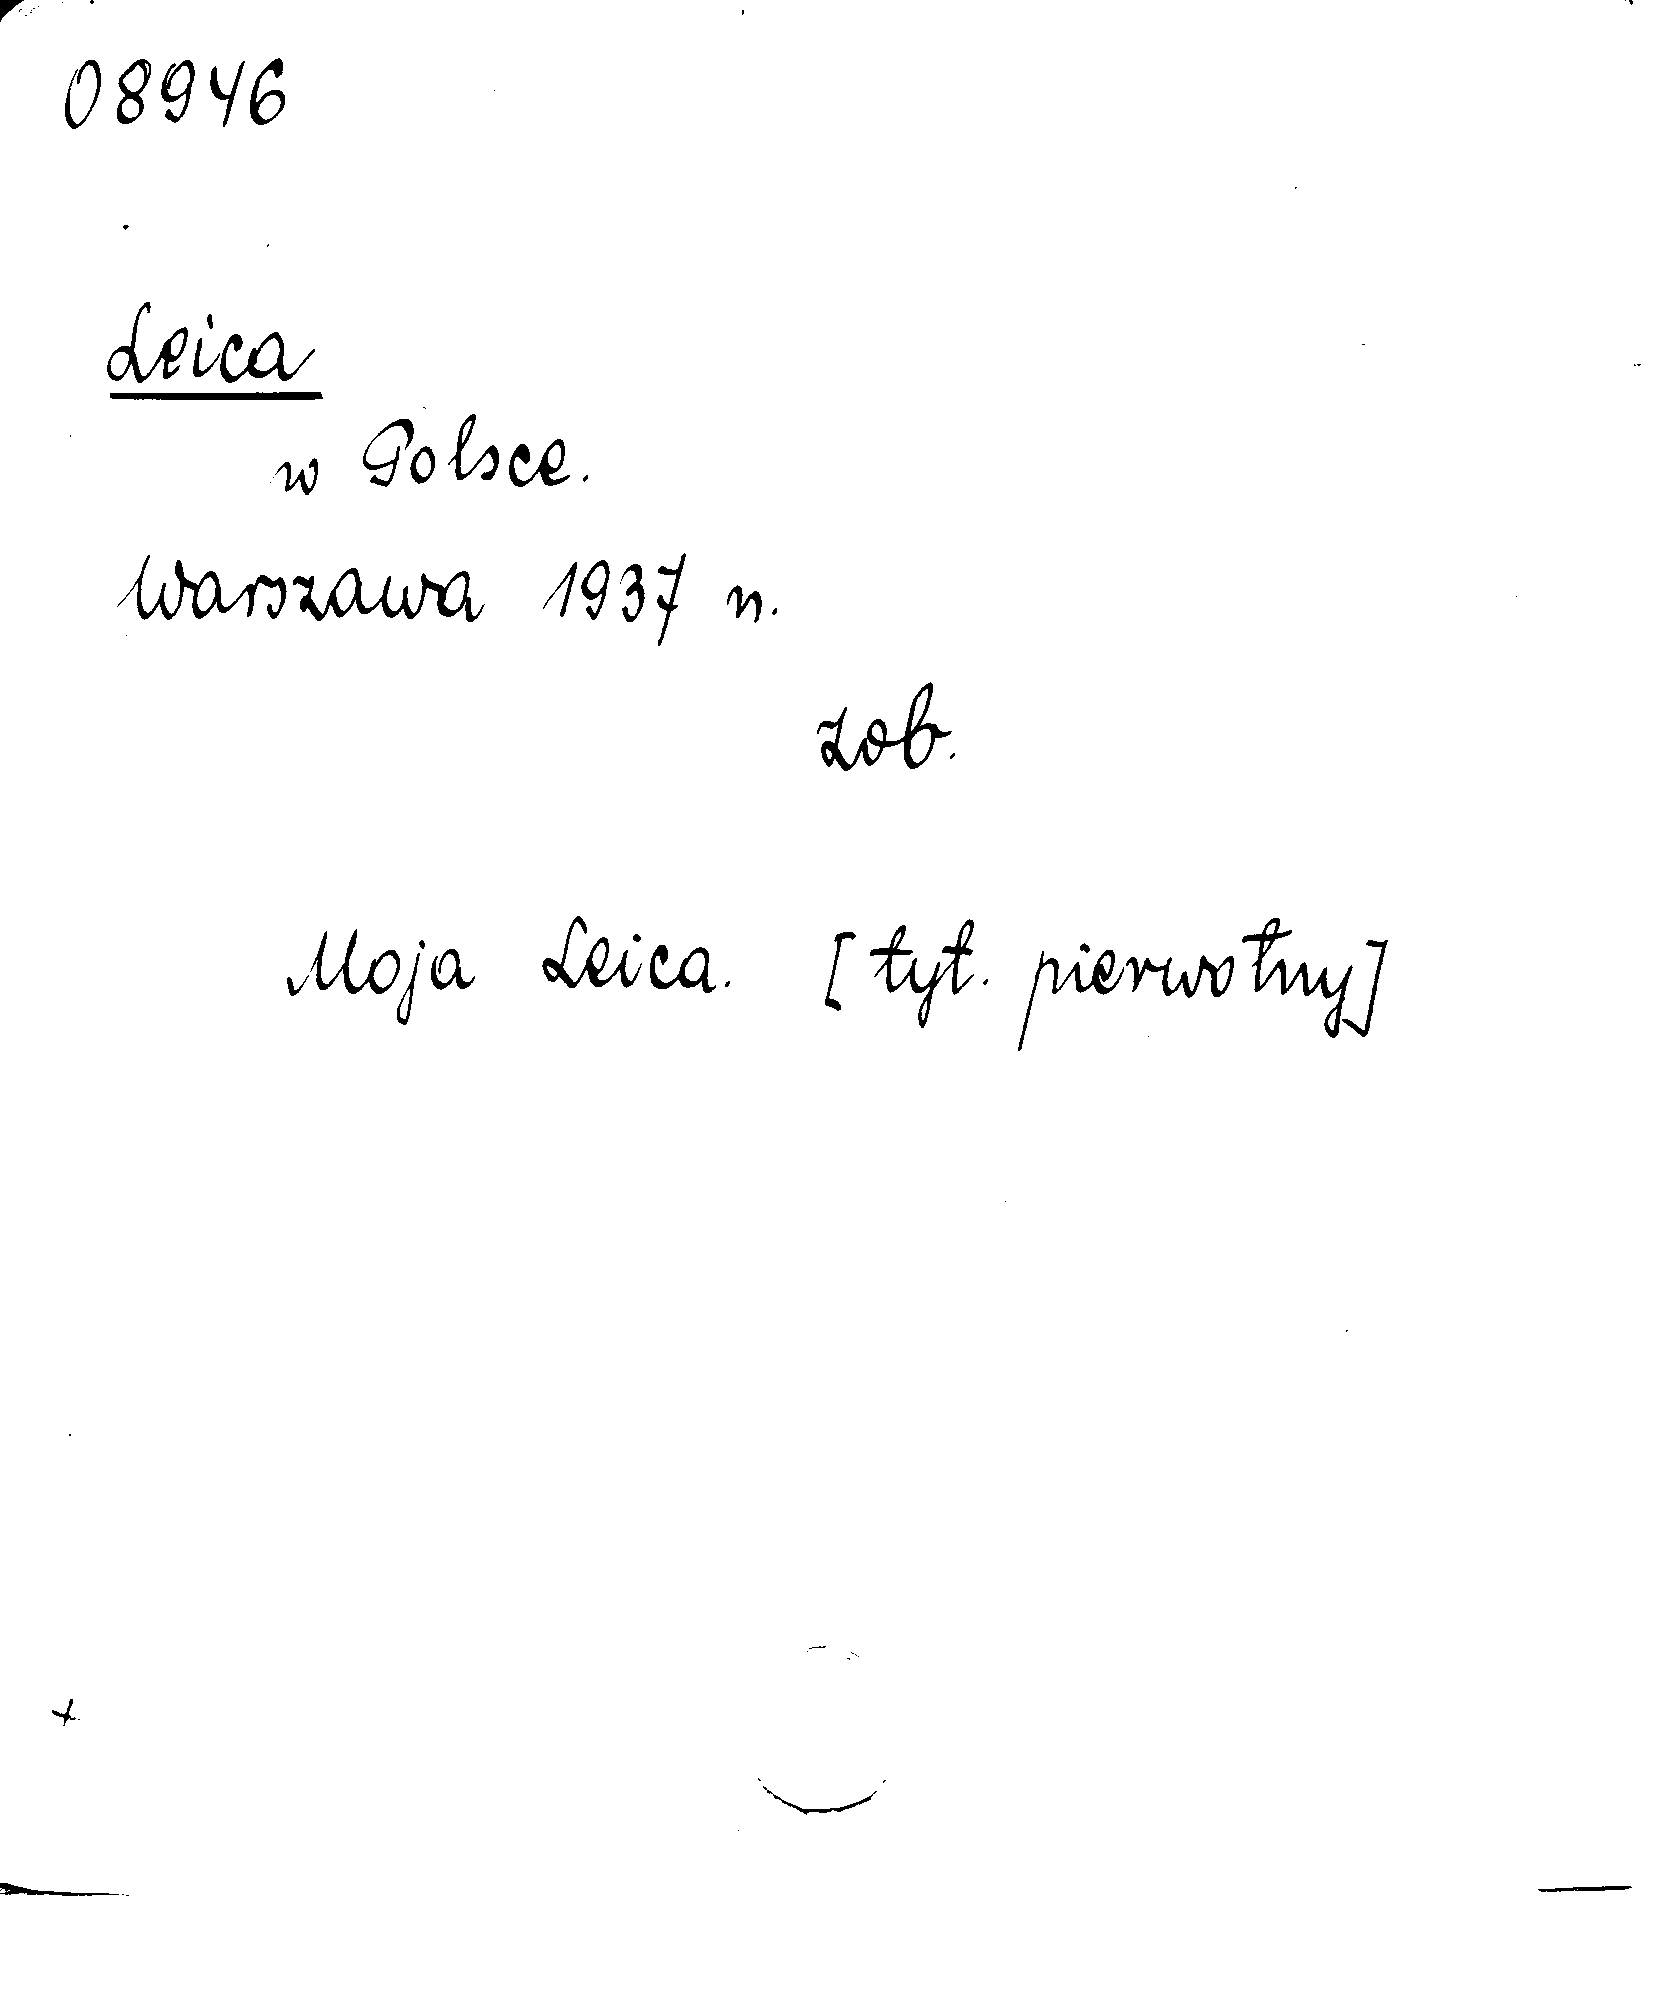 08946
Leica
w Polsce.
Warszawa 1937 n.
zob.
Moja Leica. [tyt. pierwotny]